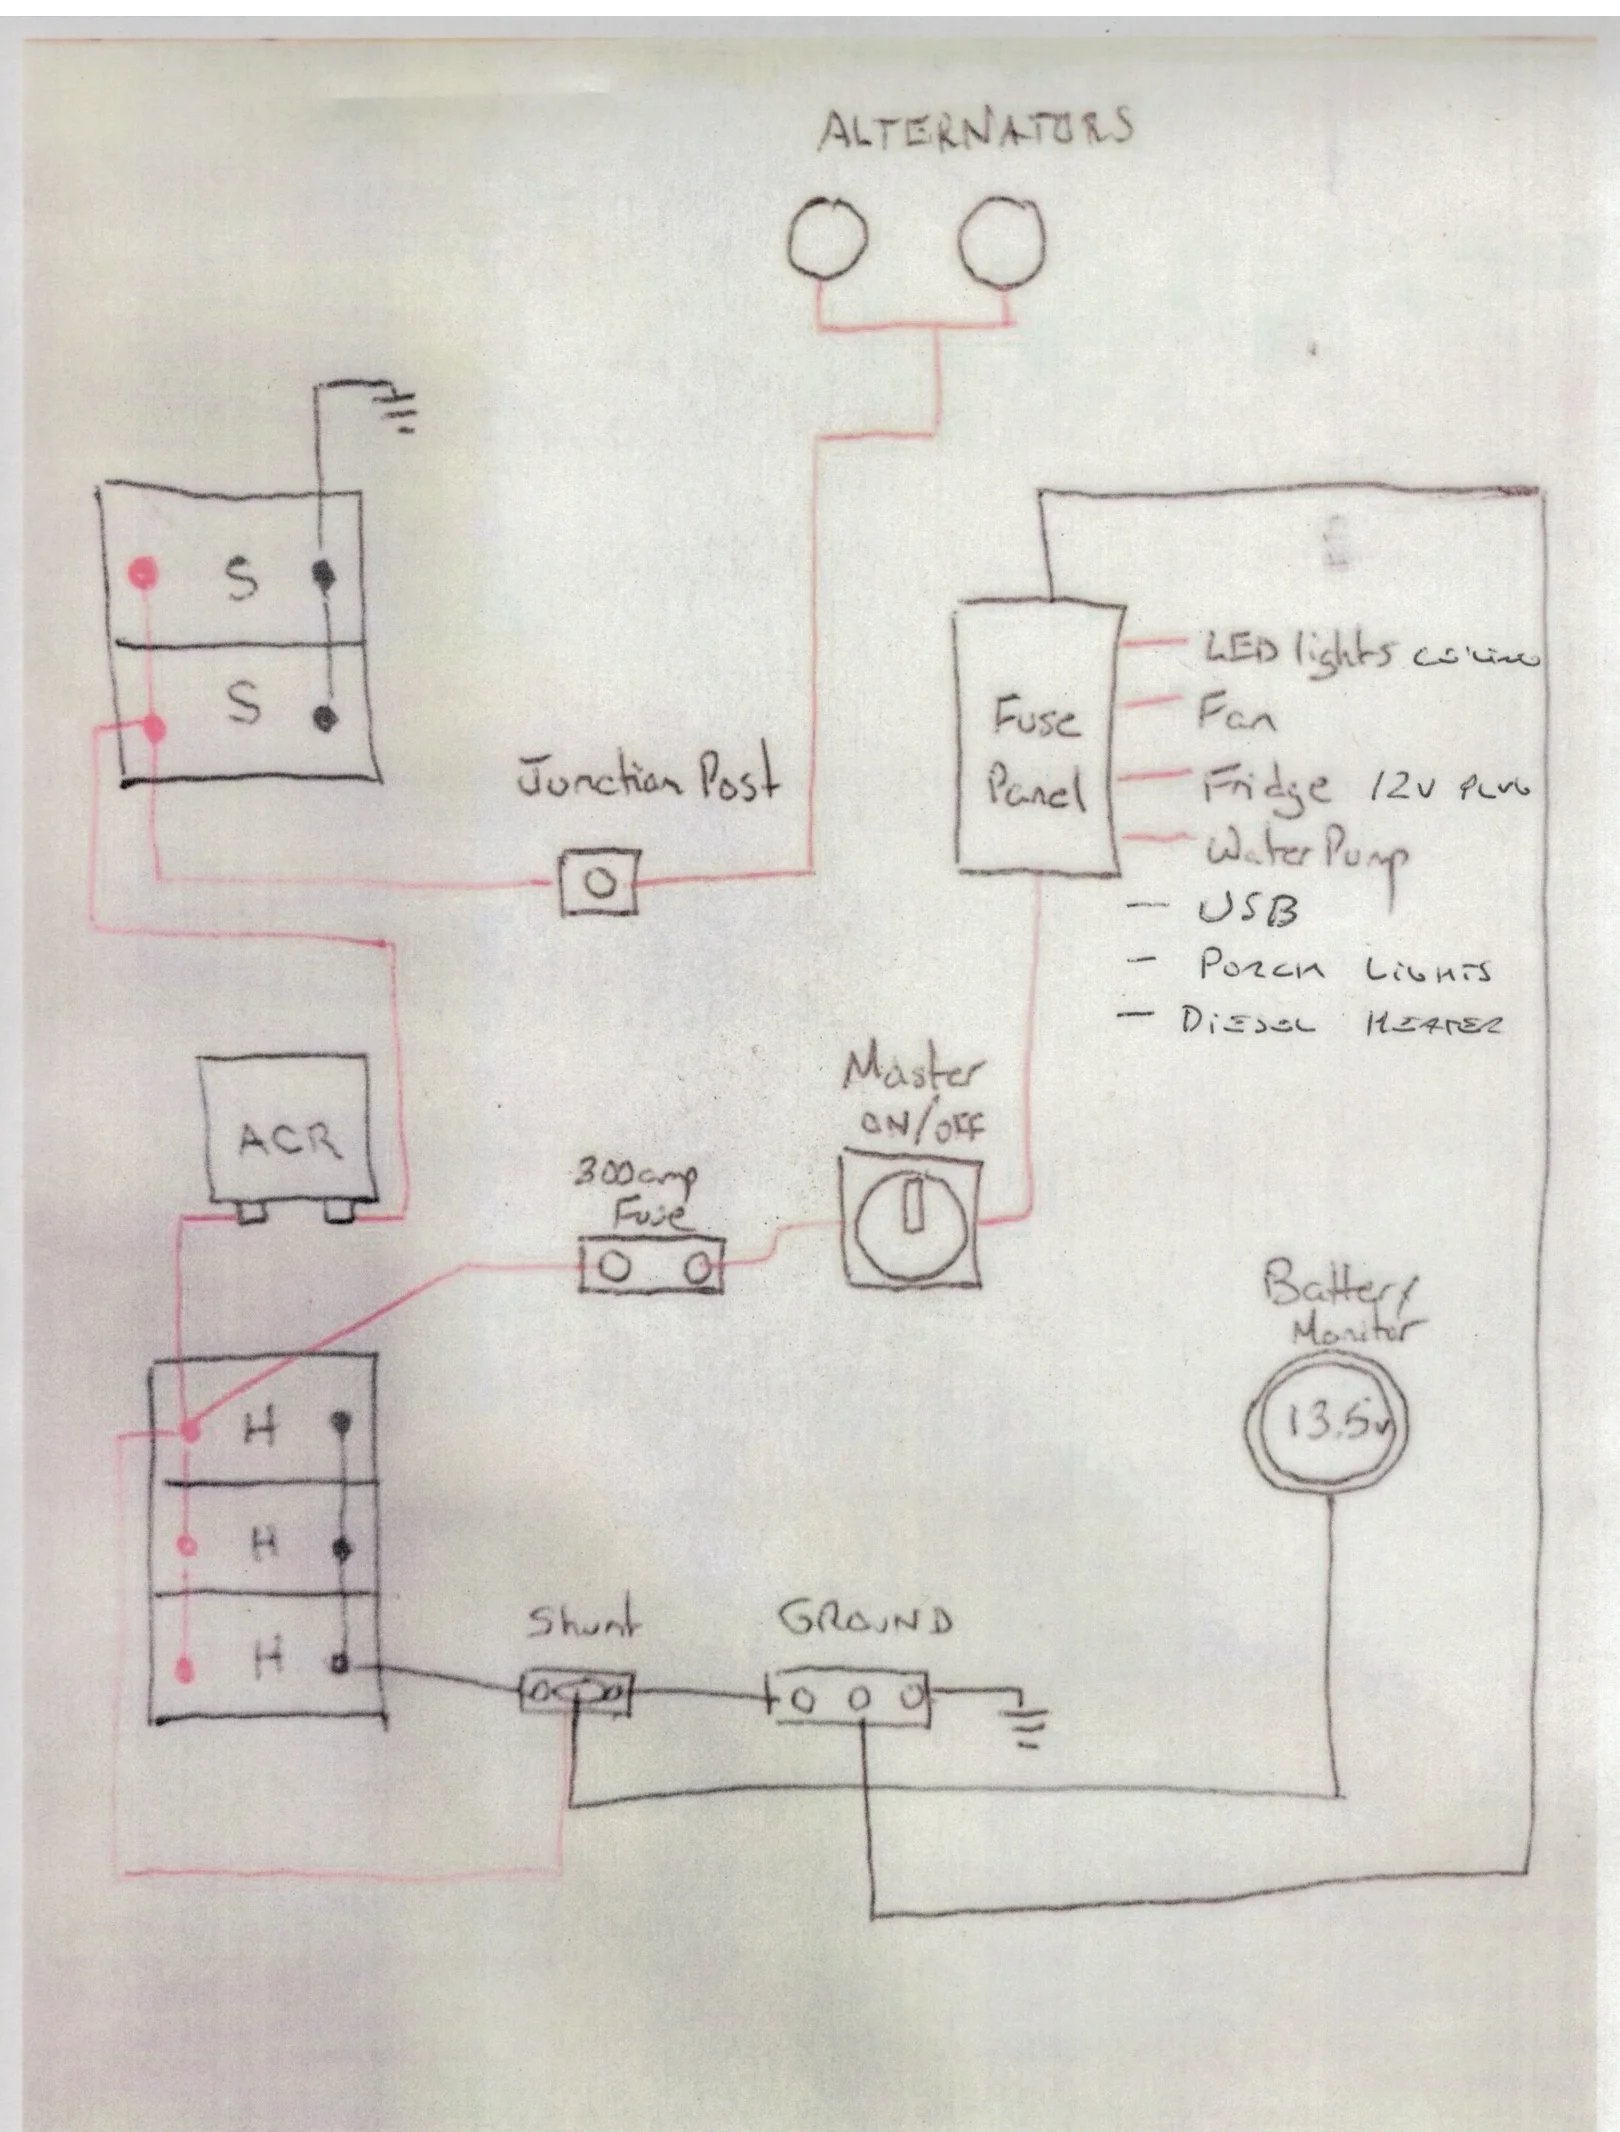 ALTERNATORS
S
S
Junction Post
Fuse
Panel
LED lights
Fan
Fridge 12V PLUG
Water Pump
- USB
- PORCH LIGHTS
- DIESEL HEATER
ACR
Master
ON/OFF
300amp
Fuse
Battery
Monitor
13.5v
H
H
H
Shunt
GROUND